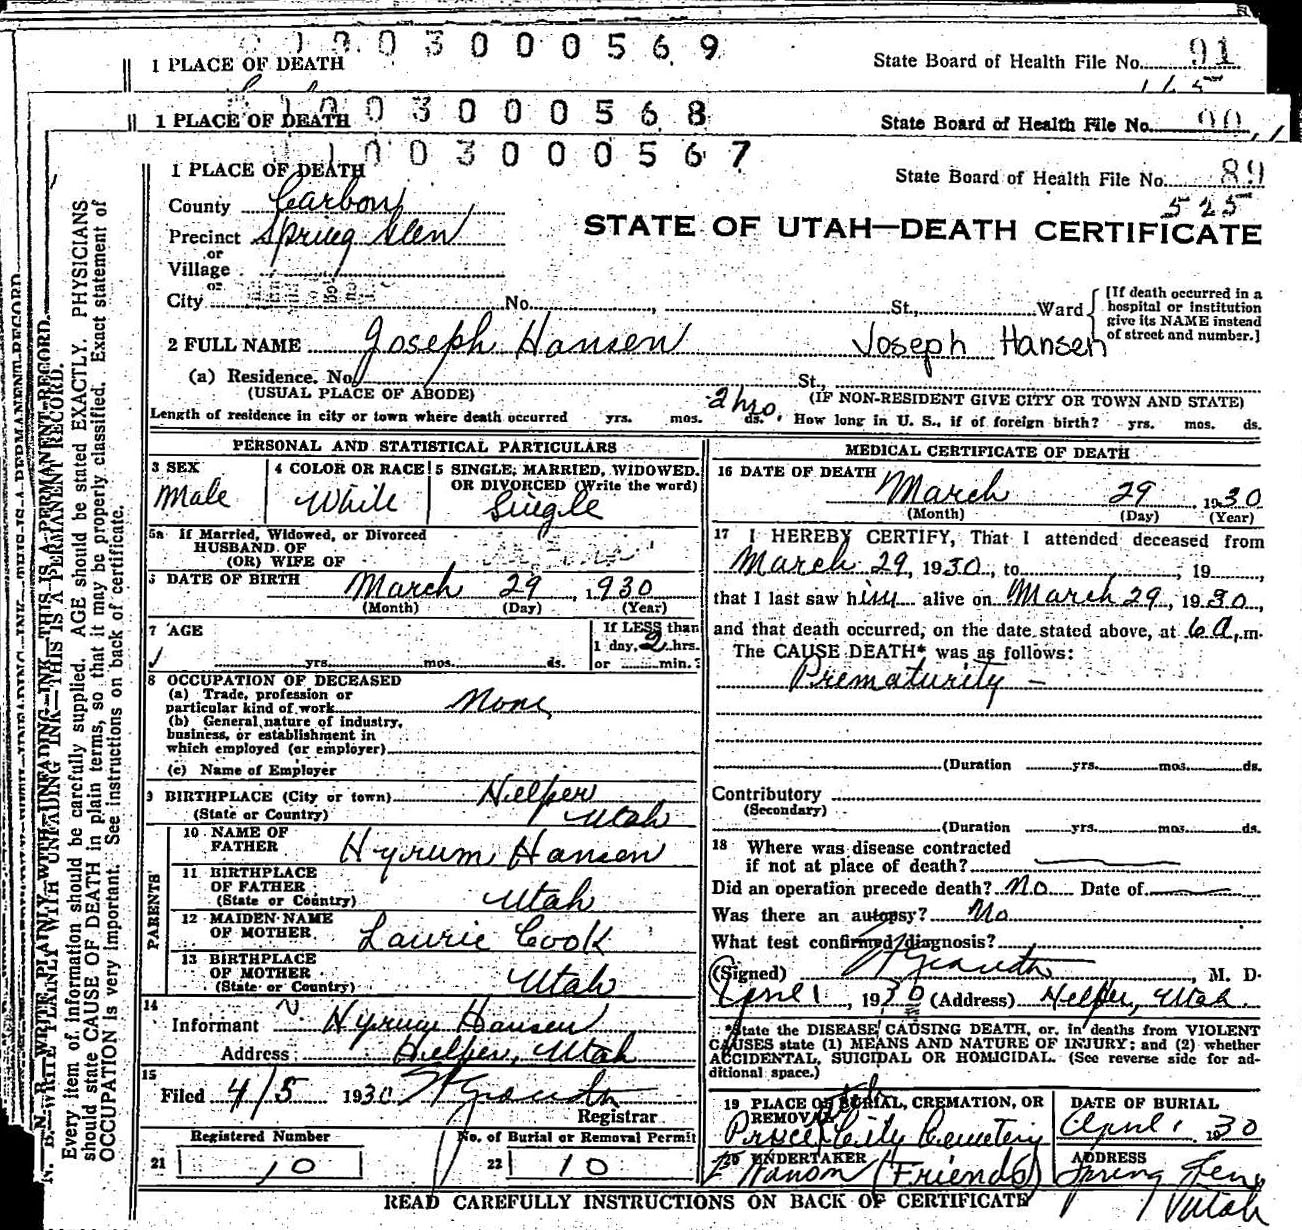 0 0 3 0 0 0 5 6 9
1 PLACE OF DEATH
State Board of Health File No. 91
0 0 3 0 0 0 5 6 8
1 PLACE OF DEATH
State Board of Health File No. 90
1 0 0 3 0 0 0 5 6 7
1 PLACE OF DEATH
State Board of Health File No. 89
525
County Carbon
STATE OF UTAH—DEATH CERTIFICATE
Precinct Spring Glen
or
Village
or
City No. St., Ward
[If death occurred in a hospital or institution give its NAME instead of street and number.]
2 FULL NAME Joseph Hansen Joseph Hansen
(a) Residence. No. St.,
(USUAL PLACE OF ABODE) (IF NON-RESIDENT GIVE CITY OR TOWN AND STATE)
Length of residence in city or town where death occurred yrs. mos. 2 hrs. ds. How long in U. S., if of foreign birth? yrs. mos. ds.
PERSONAL AND STATISTICAL PARTICULARS
3 SEX
Male
4 COLOR OR RACE
White
5 SINGLE, MARRIED, WIDOWED, OR DIVORCED (Write the word)
Single
5a If Married, Widowed, or Divorced
HUSBAND OF
(OR) WIFE OF
6 DATE OF BIRTH March 29, 1930
(Month) (Day) (Year)
7 AGE
yrs. mos. ds.
If LESS than
1 day, 2 hrs.
or min.?
8 OCCUPATION OF DECEASED
(a) Trade, profession or
particular kind of work None
(b) General nature of industry,
business, or establishment in
which employed (or employer)
(c) Name of Employer
9 BIRTHPLACE (City or town) Helper
(State or Country) Utah
PARENTS
10 NAME OF
FATHER Hyrum Hansen
11 BIRTHPLACE
OF FATHER
(State or Country) Utah
12 MAIDEN NAME
OF MOTHER Laurie Cook
13 BIRTHPLACE
OF MOTHER
(State or Country) Utah
14
Informant Hyrum Hansen
Address Helper, Utah
15
Filed 4/5 1930
Registrar
Registered Number
21 10
No. of Burial or Removal Permit
22 10
MEDICAL CERTIFICATE OF DEATH
16 DATE OF DEATH March 29, 1930
(Month) (Day) (Year)
17 I HEREBY CERTIFY, That I attended deceased from
March 29, 1930, to , 19 ,
that I last saw him alive on March 29, 1930,
and that death occurred, on the date stated above, at 6 a. m.
The CAUSE DEATH* was as follows:
Prematurity —
(Duration yrs. mos. ds.
Contributory
(Secondary)
(Duration yrs. mos. ds.
18 Where was disease contracted
if not at place of death?
Did an operation precede death? No Date of
Was there an autopsy? No
What test confirmed diagnosis?
(Signed) , M. D.
April 1, 1930 (Address) Helper, Utah.
*State the DISEASE CAUSING DEATH, or, in deaths from VIOLENT
CAUSES state (1) MEANS AND NATURE OF INJURY; and (2) whether
ACCIDENTAL, SUICIDAL OR HOMICIDAL. (See reverse side for ad-
ditional space.)
19 PLACE OF BURIAL, CREMATION, OR
REMOVAL
Price City Cemetery
DATE OF BURIAL
April 1 1930
20 UNDERTAKER
Hanson (Friends)
ADDRESS
Spring Glen
Utah
READ CAREFULLY INSTRUCTIONS ON BACK OF CERTIFICATE
N. B.—WRITE PLAINLY WITH UNFADING INK—THIS IS A PERMANENT RECORD.
Every item of information should be carefully supplied. AGE should be stated EXACTLY. PHYSICIANS
should state CAUSE OF DEATH in plain terms, so that it may be properly classified. Exact statement of
OCCUPATION is very important. See instructions on back of certificate.